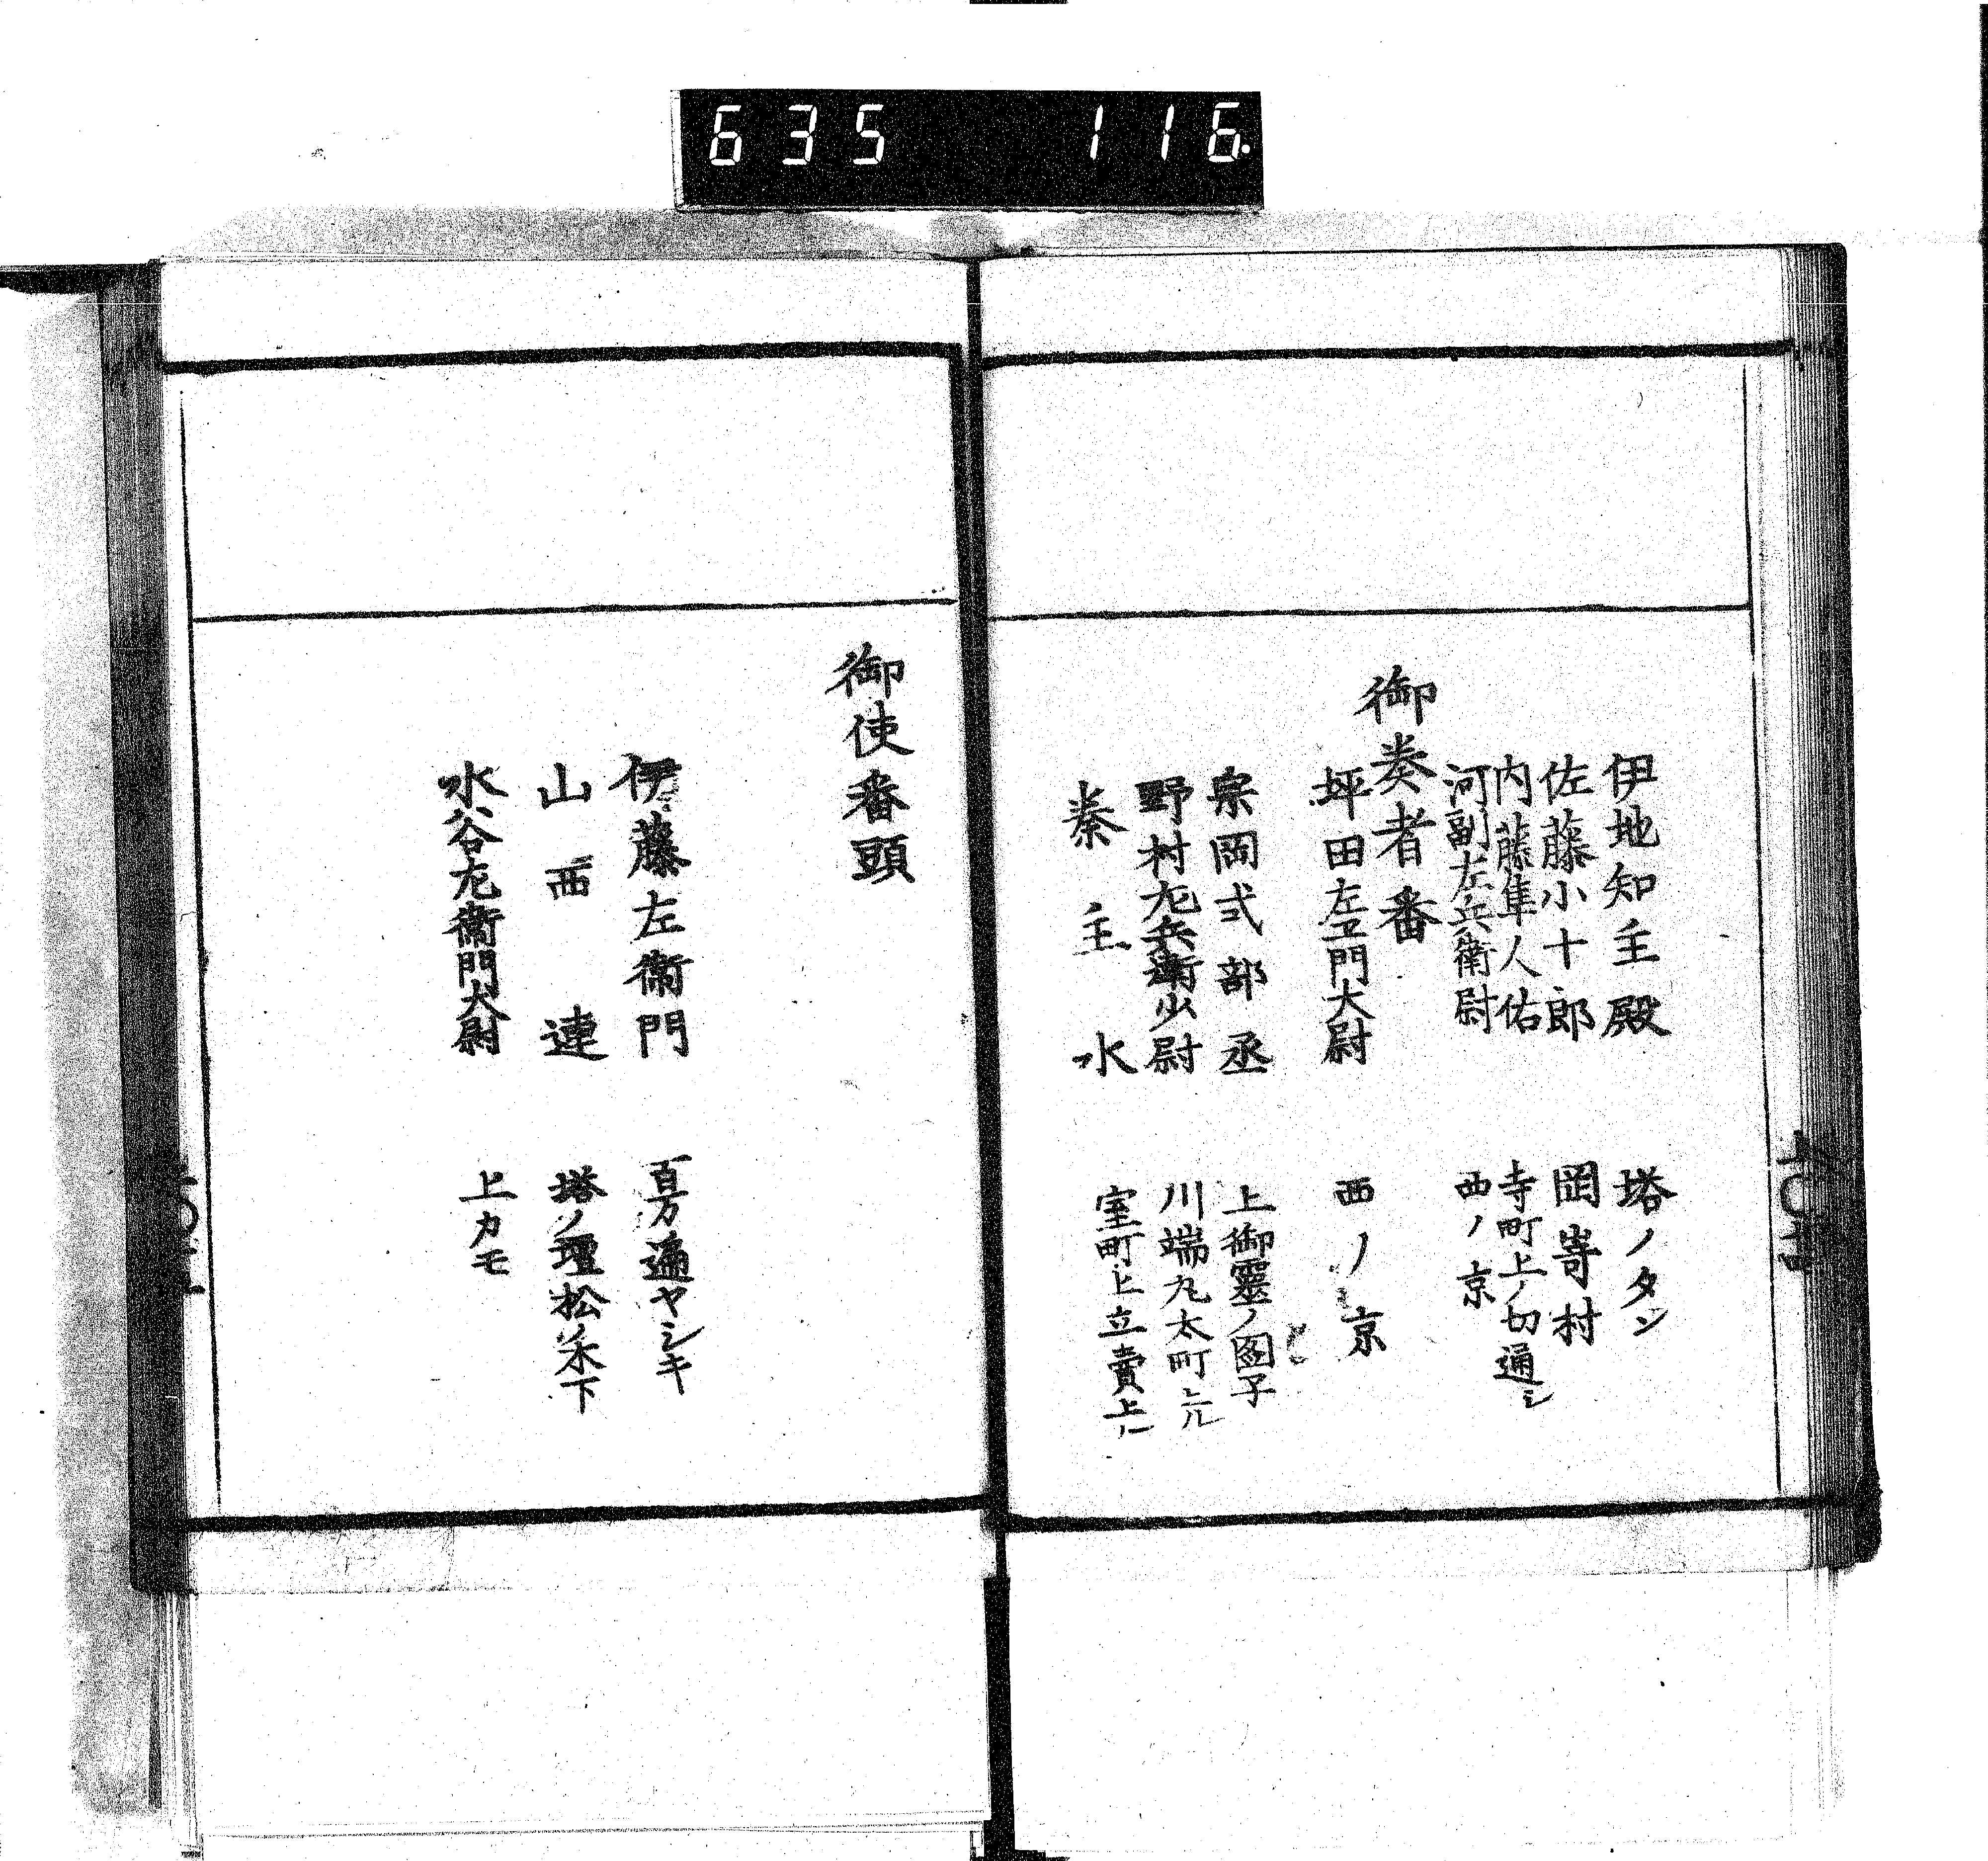 635 116.
伊地知主殿 塔ノタン
佐藤小十郎 岡嵜村
内藤隼人佑 寺町上ノ切通シ
河副左兵衛尉 西ノ京
御奏者番
坪田左卫門大尉 西ノ京
宗岡式部丞 上御霊ノ図子
野村左兵衛少尉 川端丸太町上ル
秦主水 室町上立賣上ル
御使番頭
伊藤左衛門 百万遍ヤシキ
山西連 塔ノ壇松ノ木下
水谷左衛門大尉 上カモ